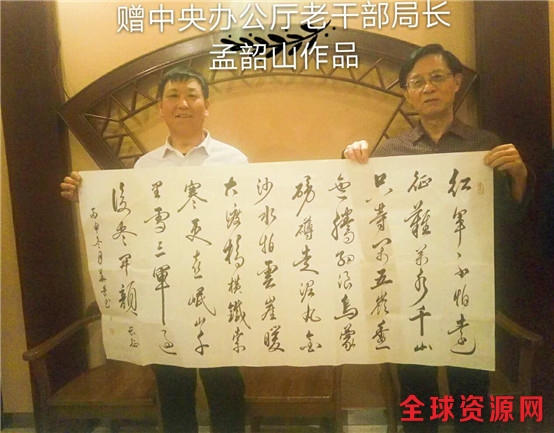 赠中央办公厅老干部局长
孟韶山作品
红军不怕遠
征難萬水千山
只等闲五嶺逶
迤騰细浪烏蒙
磅礴走泥丸金
沙水拍雲崖暖
大渡橋横鐵索
寒更喜岷山千
里雪三軍过
後尽开顔
丙申冬月
全球资源网